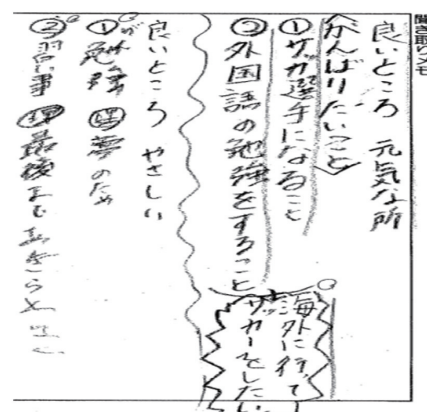 聞き取りメモ
良いところ 元気な所
がんばりたいこと
①サッカー選手になること
②外国語の勉強をすること
海外に行って
サッカーをしたい
良いところ やさしい
が
①勉強 夢のため
②習い事 最後まであきらめない